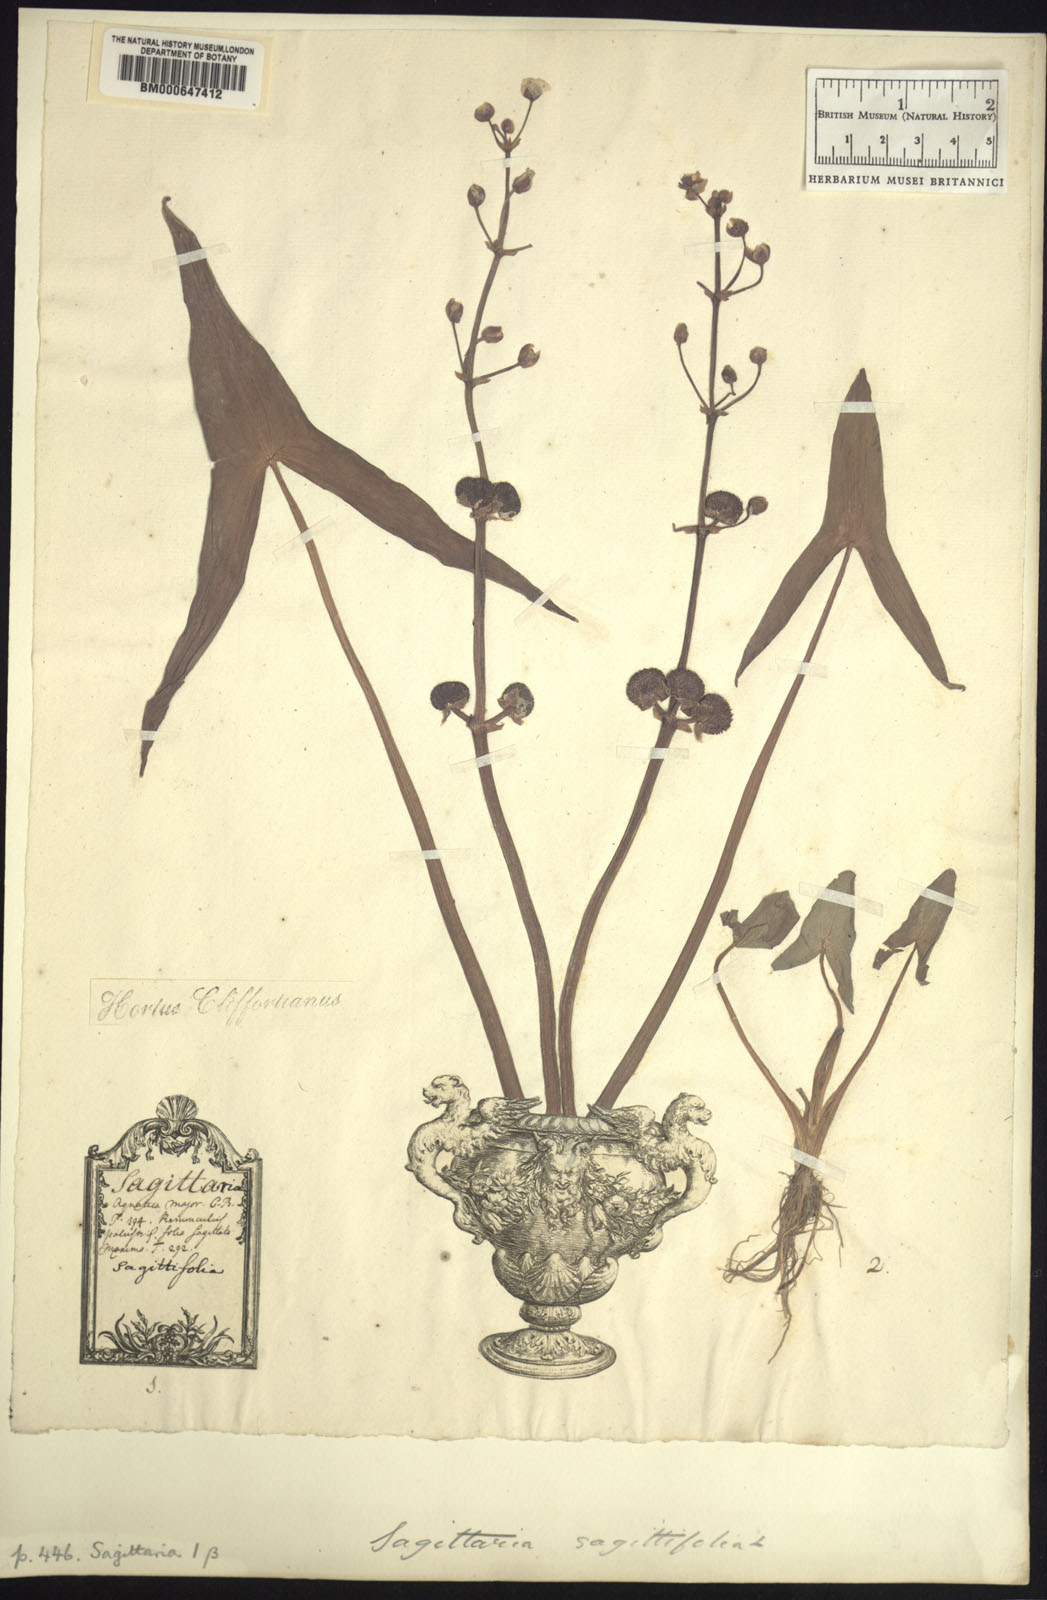 THE NATURAL HISTORY MUSEUM, LONDON
DEPARTMENT OF BOTANY
BM000647412
1 2
BRITISH MUSEUM (NATURAL HISTORY)
1 2 3 4 5
HERBARIUM MUSEI BRITANNICI
Hortus Cliffortianus
Sagittaria
Aquatica major. C.B.
P. 194. Ranunculus
palustris folio Sagittato
maximo. T. 292.
Sagittifolia
1.
2.
Sagittaria sagittifolia L
p. 446. Sagittaria 1 β